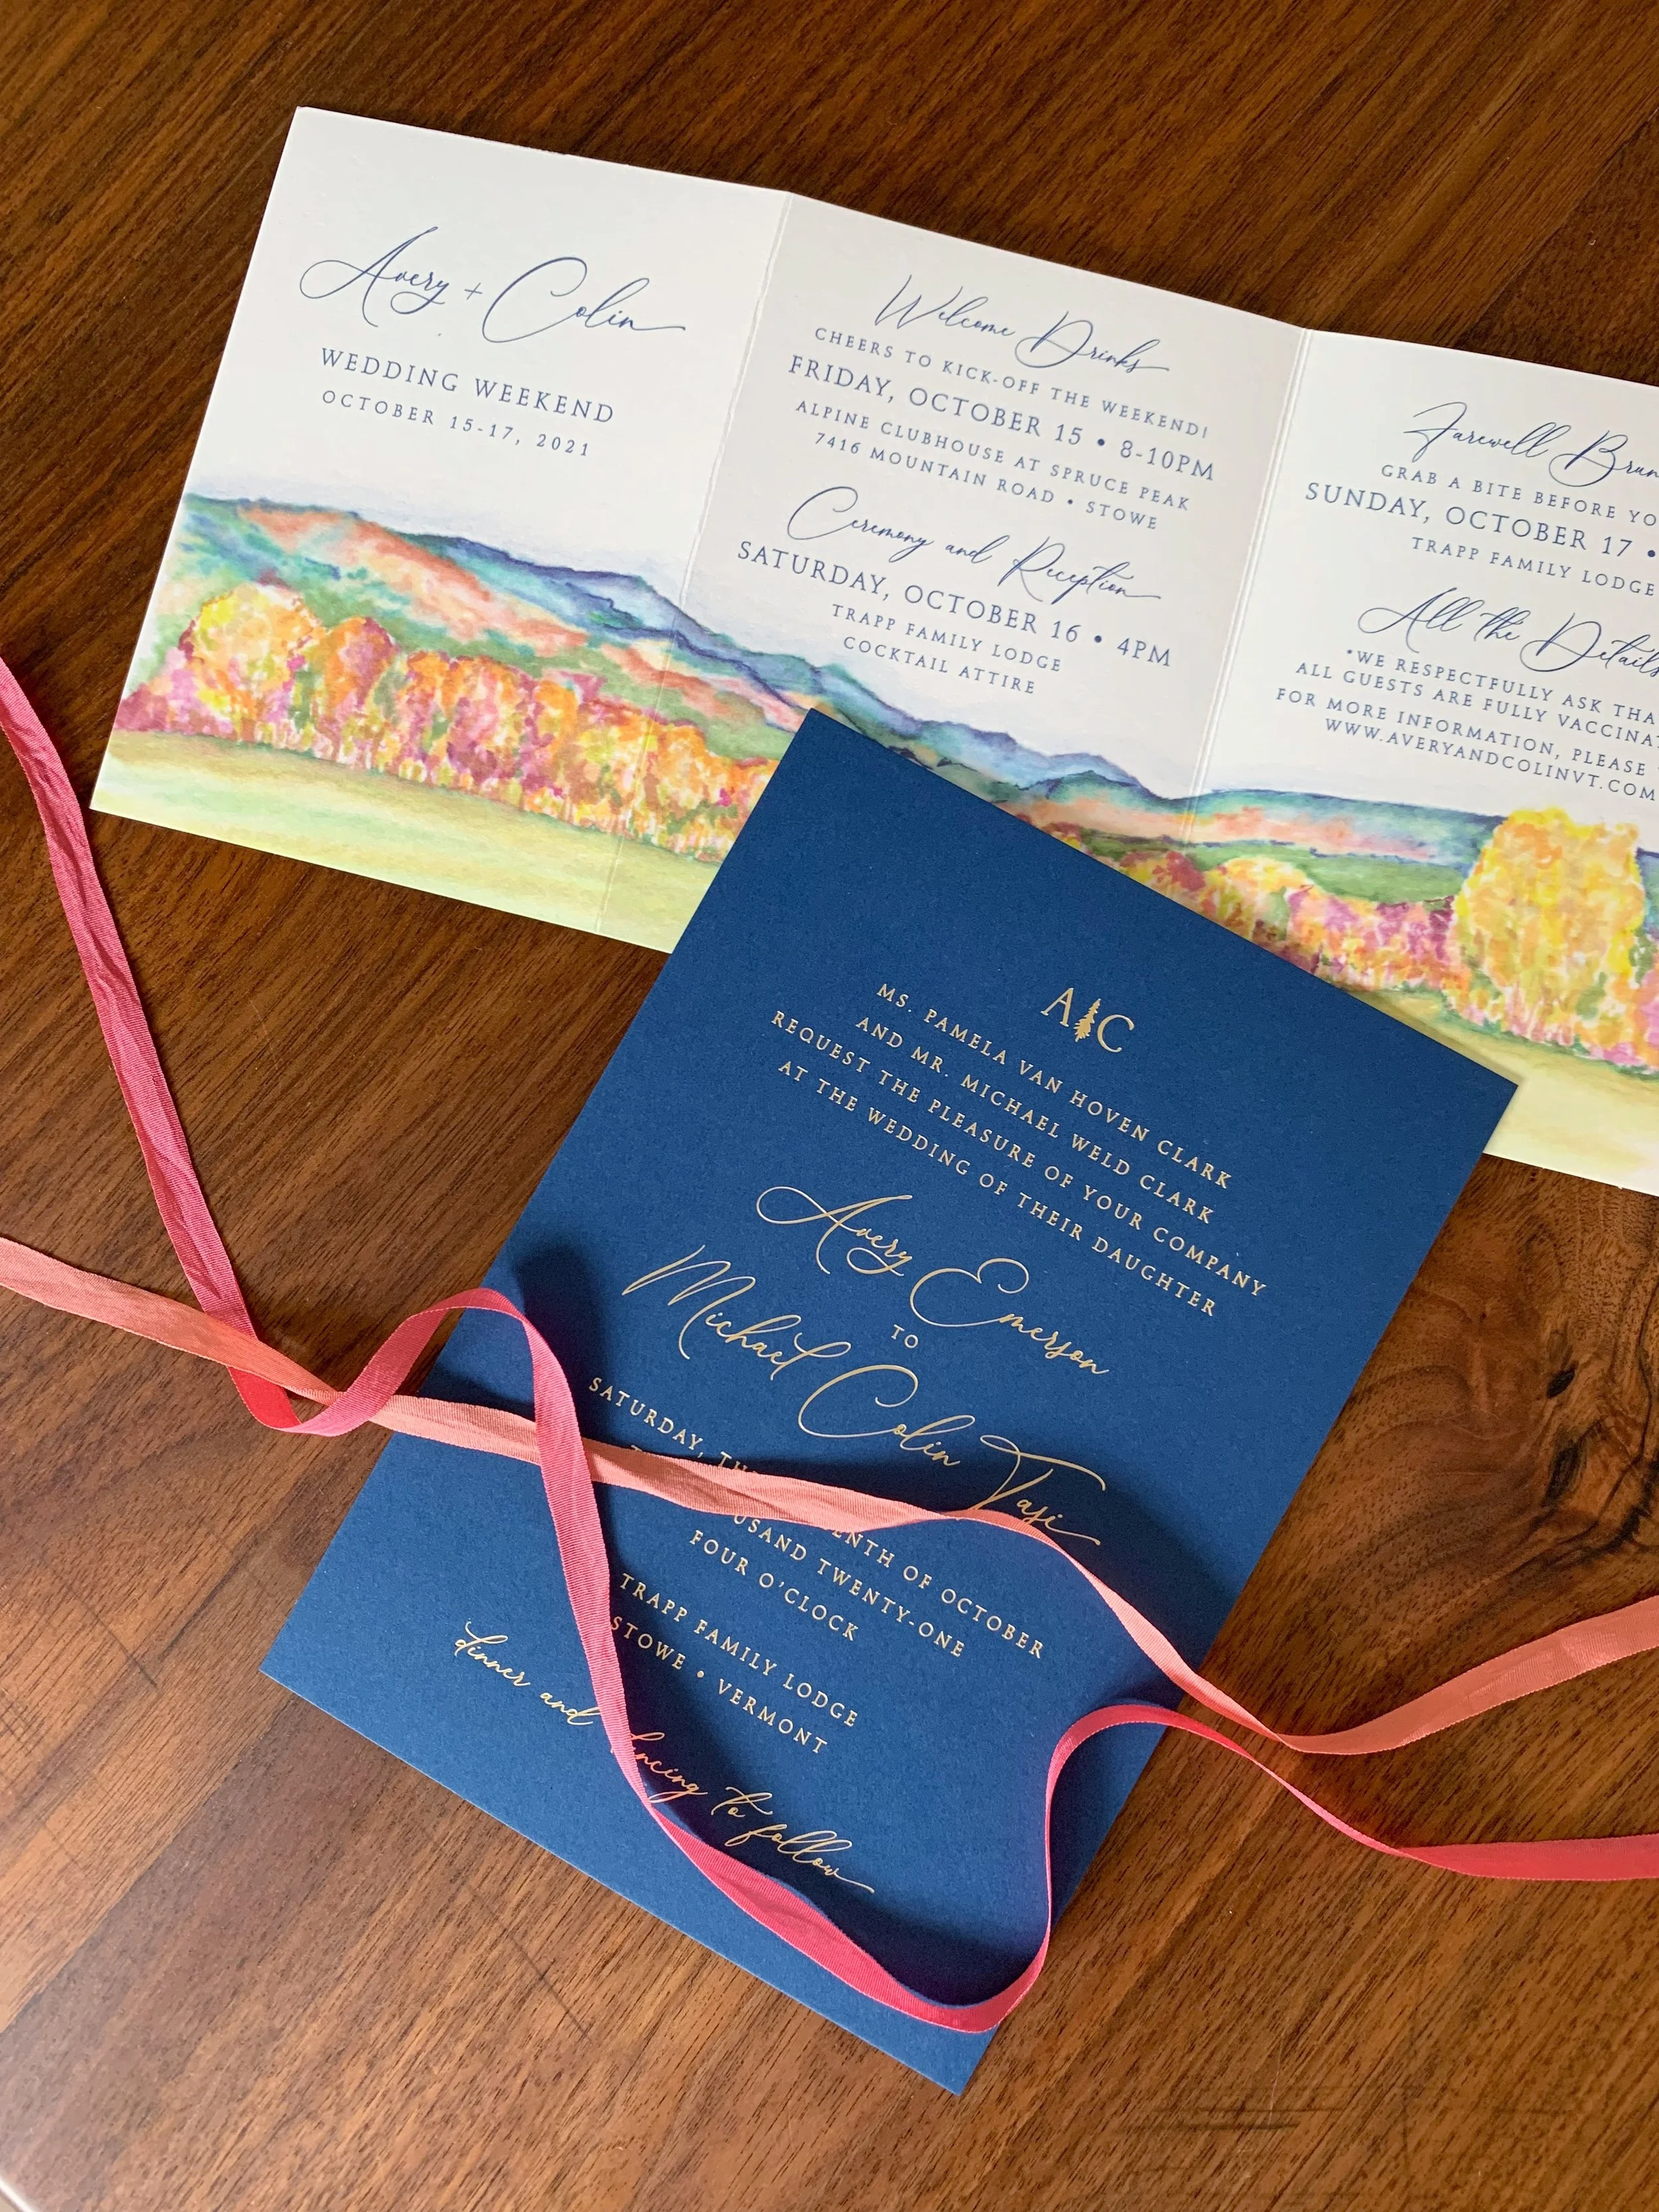 Avery + Colin
WEDDING WEEKEND
OCTOBER 15-17, 2021
Welcome Drinks
CHEERS TO KICK-OFF THE WEEKEND!
FRIDAY, OCTOBER 15 • 8-10PM
ALPINE CLUBHOUSE AT SPRUCE PEAK
7416 MOUNTAIN ROAD • STOWE
Ceremony and Reception
SATURDAY, OCTOBER 16 • 4PM
TRAPP FAMILY LODGE
COCKTAIL ATTIRE
Farewell
GRAB A BITE BEFORE
SUNDAY, OCTOBER 17 •
TRAPP FAMILY LODGE
All the Details
*WE RESPECTFULLY ASK
ALL GUESTS ARE FULLY
FOR MORE INFORMATION, PLEASE
WWW.AVERYANDCOLINVT.COM
A C
MS. PAMELA VAN HOVEN CLARK
AND MR. MICHAEL WELD CLARK
REQUEST THE PLEASURE OF YOUR COMPANY
AT THE WEDDING OF THEIR DAUGHTER
Avery Emerson
TO
Michael Colin Tasi
SATURDAY, OF OCTOBER
TWENTY-ONE
FOUR O'CLOCK
TRAPP FAMILY LODGE
STOWE • VERMONT
dinner and to follow